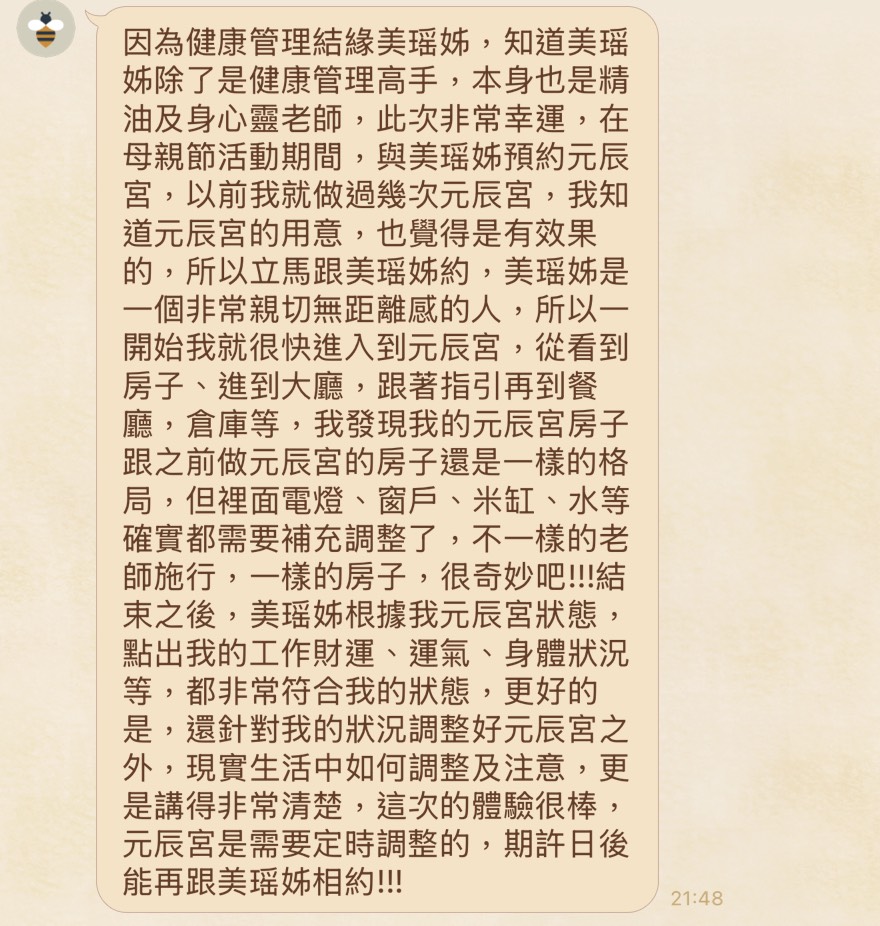 因為健康管理結緣美瑶姊，知道美瑶
姊除了是健康管理高手，本身也是精
油及身心靈老師，此次非常幸運，在
母親節活動期間，與美瑶姊預約元辰
宮，以前我就做過幾次元辰宮，我知
道元辰宮的用意，也覺得是有效果
的，所以立馬跟美瑶姊約，美瑶姊是
一個非常親切無距離感的人，所以一
開始我就很快進入到元辰宮，從看到
房子、進到大廳，跟著指引再到餐
廳，倉庫等，我發現我的元辰宮房子
跟之前做元辰宮的房子還是一樣的格
局，但裡面電燈、窗戶、米缸、水等
確實都需要補充調整了，不一樣的老
師施行，一樣的房子，很奇妙吧!!!結
束之後，美瑶姊根據我元辰宮狀態，
點出我的工作財運、運氣、身體狀況
等，都非常符合我的狀態，更好的
是，還針對我的狀況調整好元辰宮之
外，現實生活中如何調整及注意，更
是講得非常清楚，這次的體驗很棒，
元辰宮是需要定時調整的，期許日後
能再跟美瑶姊相約!!!
21:48